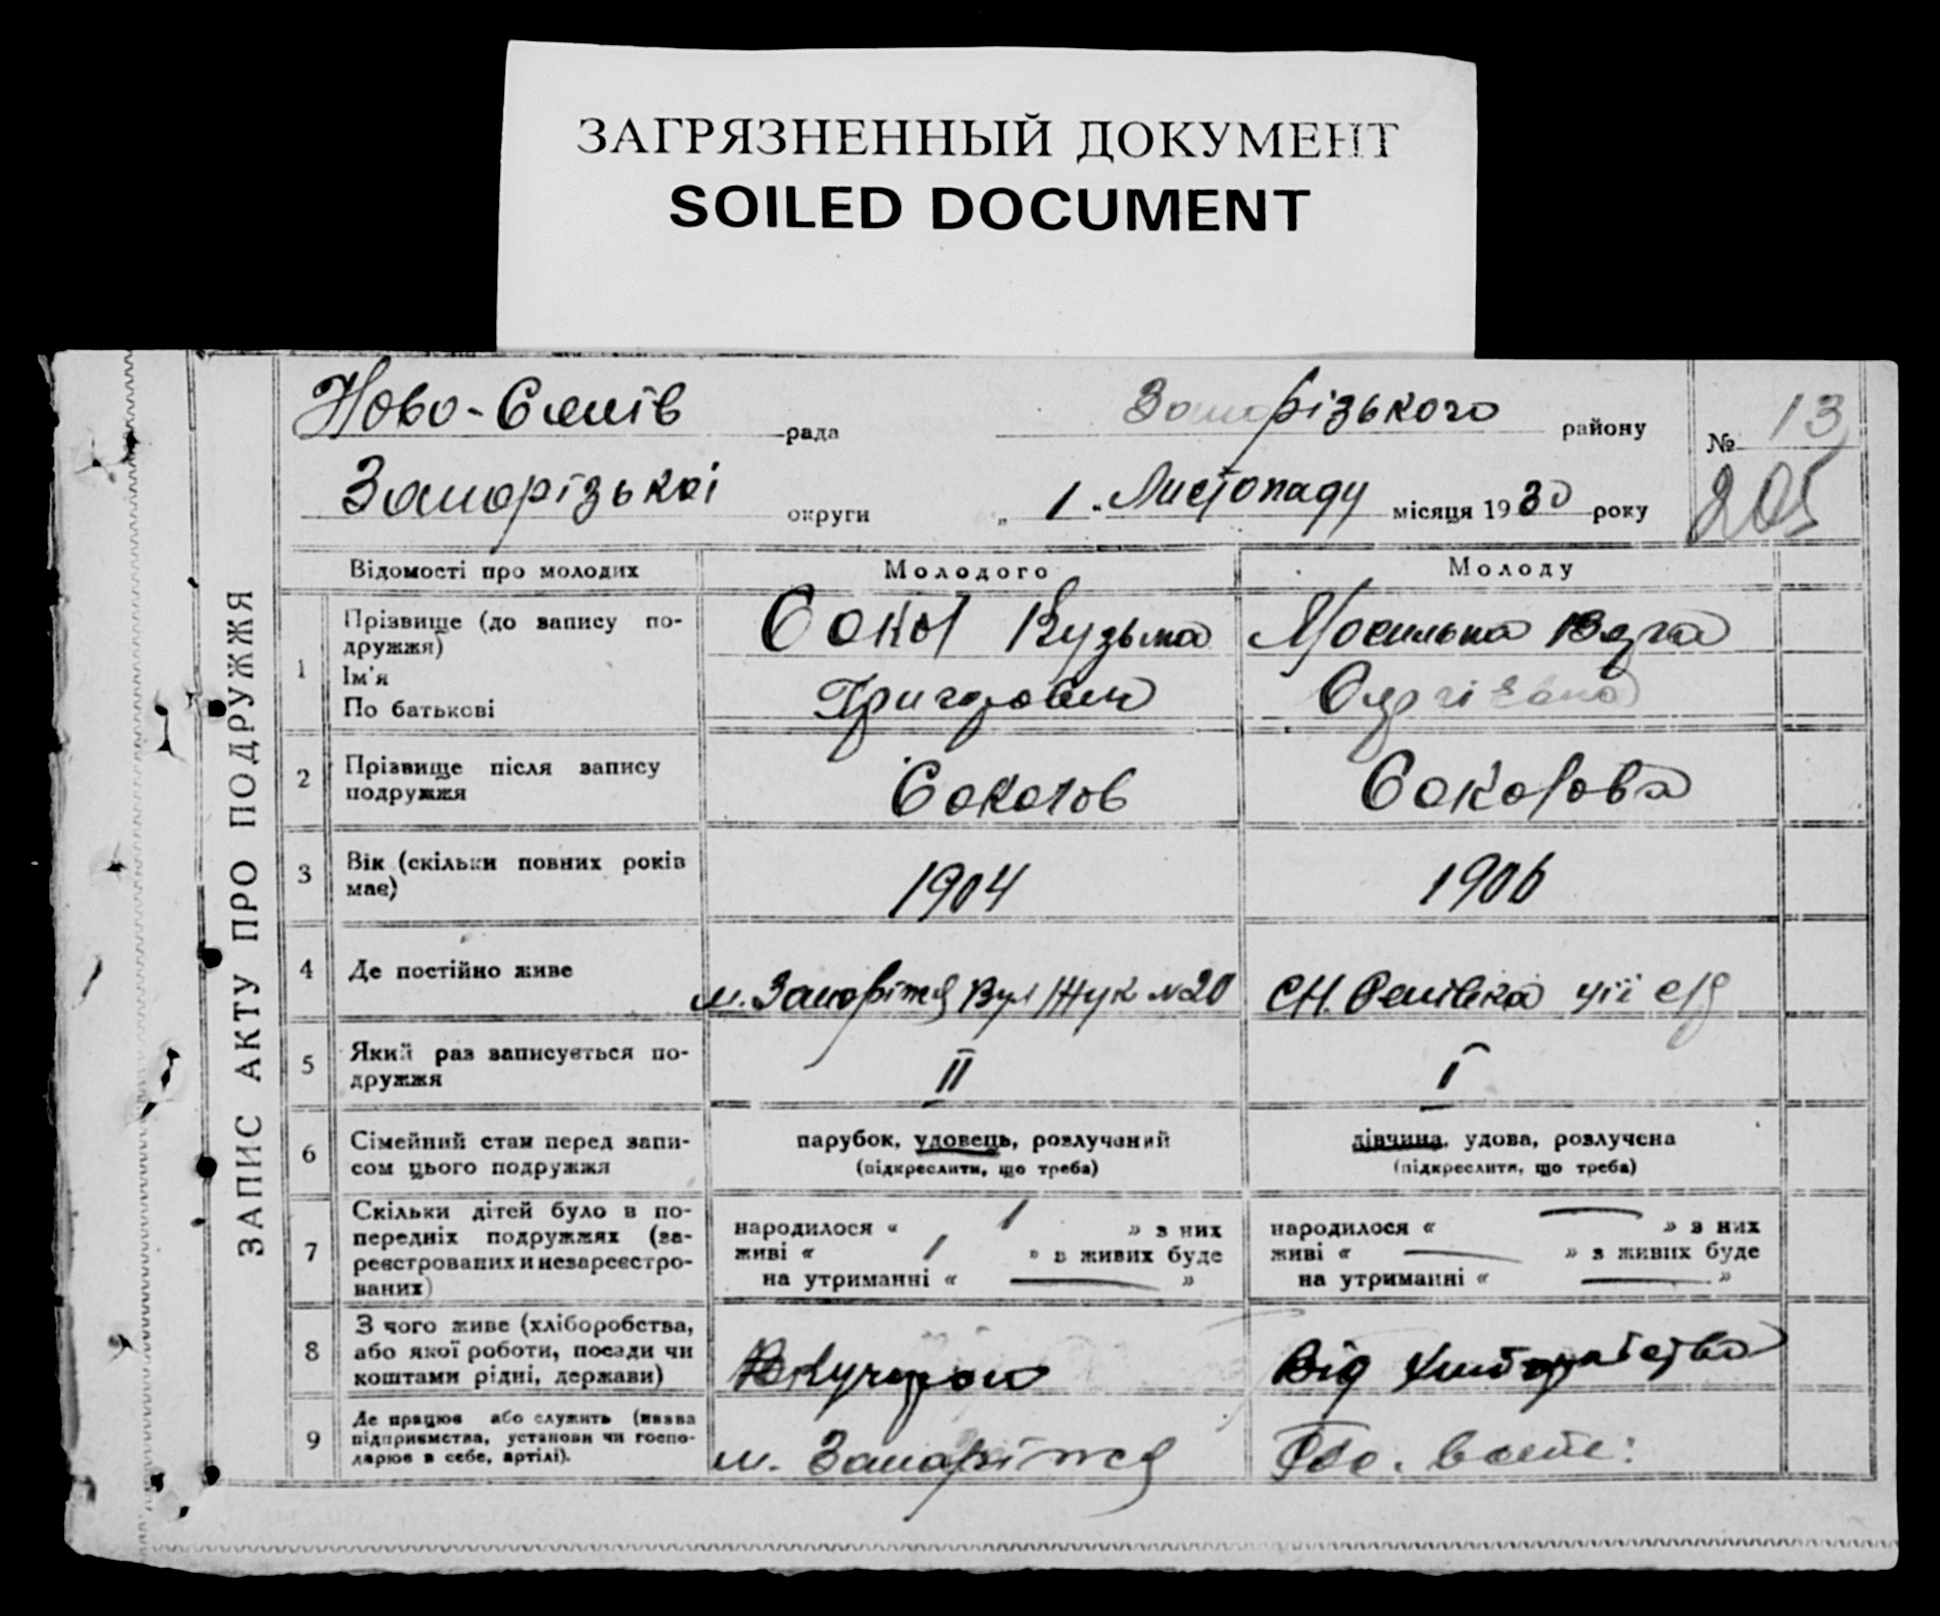 ЗАГРЯЗНЕННЫЙ ДОКУМЕНТ
SOILED DOCUMENT
Ново-Селів рада Запорізького району № 13
Запорізькоі округи „ 1 " Листопаду місяця 1930 року 205
ЗАПИС АКТУ ПРО ПОДРУЖЖЯ
Відомості про молодих Молодого Молоду
1 Прізвище (до запису по-
дружжя)
Ім'я
По батькові
Сокол Кузьма
Григорович
2 Прізвище після запису
подружжя
Соколов
Соколова
3 Вік (скільки повних років
має)
1904
1906
4 Де постійно живе
м. Запоріжжя Вул Жук № 20
5 Який раз записується по-
дружжя
II
I
6 Сімейний стан перед запи-
сом цього подружжя
парубок, удовець, розлучений
(підкреслити, що треба)
дівчина, удова, розлучена
(підкреслити, що треба)
7 Скільки дітей було в по-
передніх подружжях (за-
реєстрованих и незареєстро-
ваних)
народилося « 1 » з них
живі « 1 » в живих буде
на утриманні « — »
народилося « — » з них
живі « — » з живих буде
на утриманні « — »
8 З чого живе (хліборобства,
або якої роботи, посади чи
коштами рідні, держави)
Від
9 Де працює або служить (назва
підприємства, установи чи госпо-
дарює в себе, артілі).
м. Запоріжжя